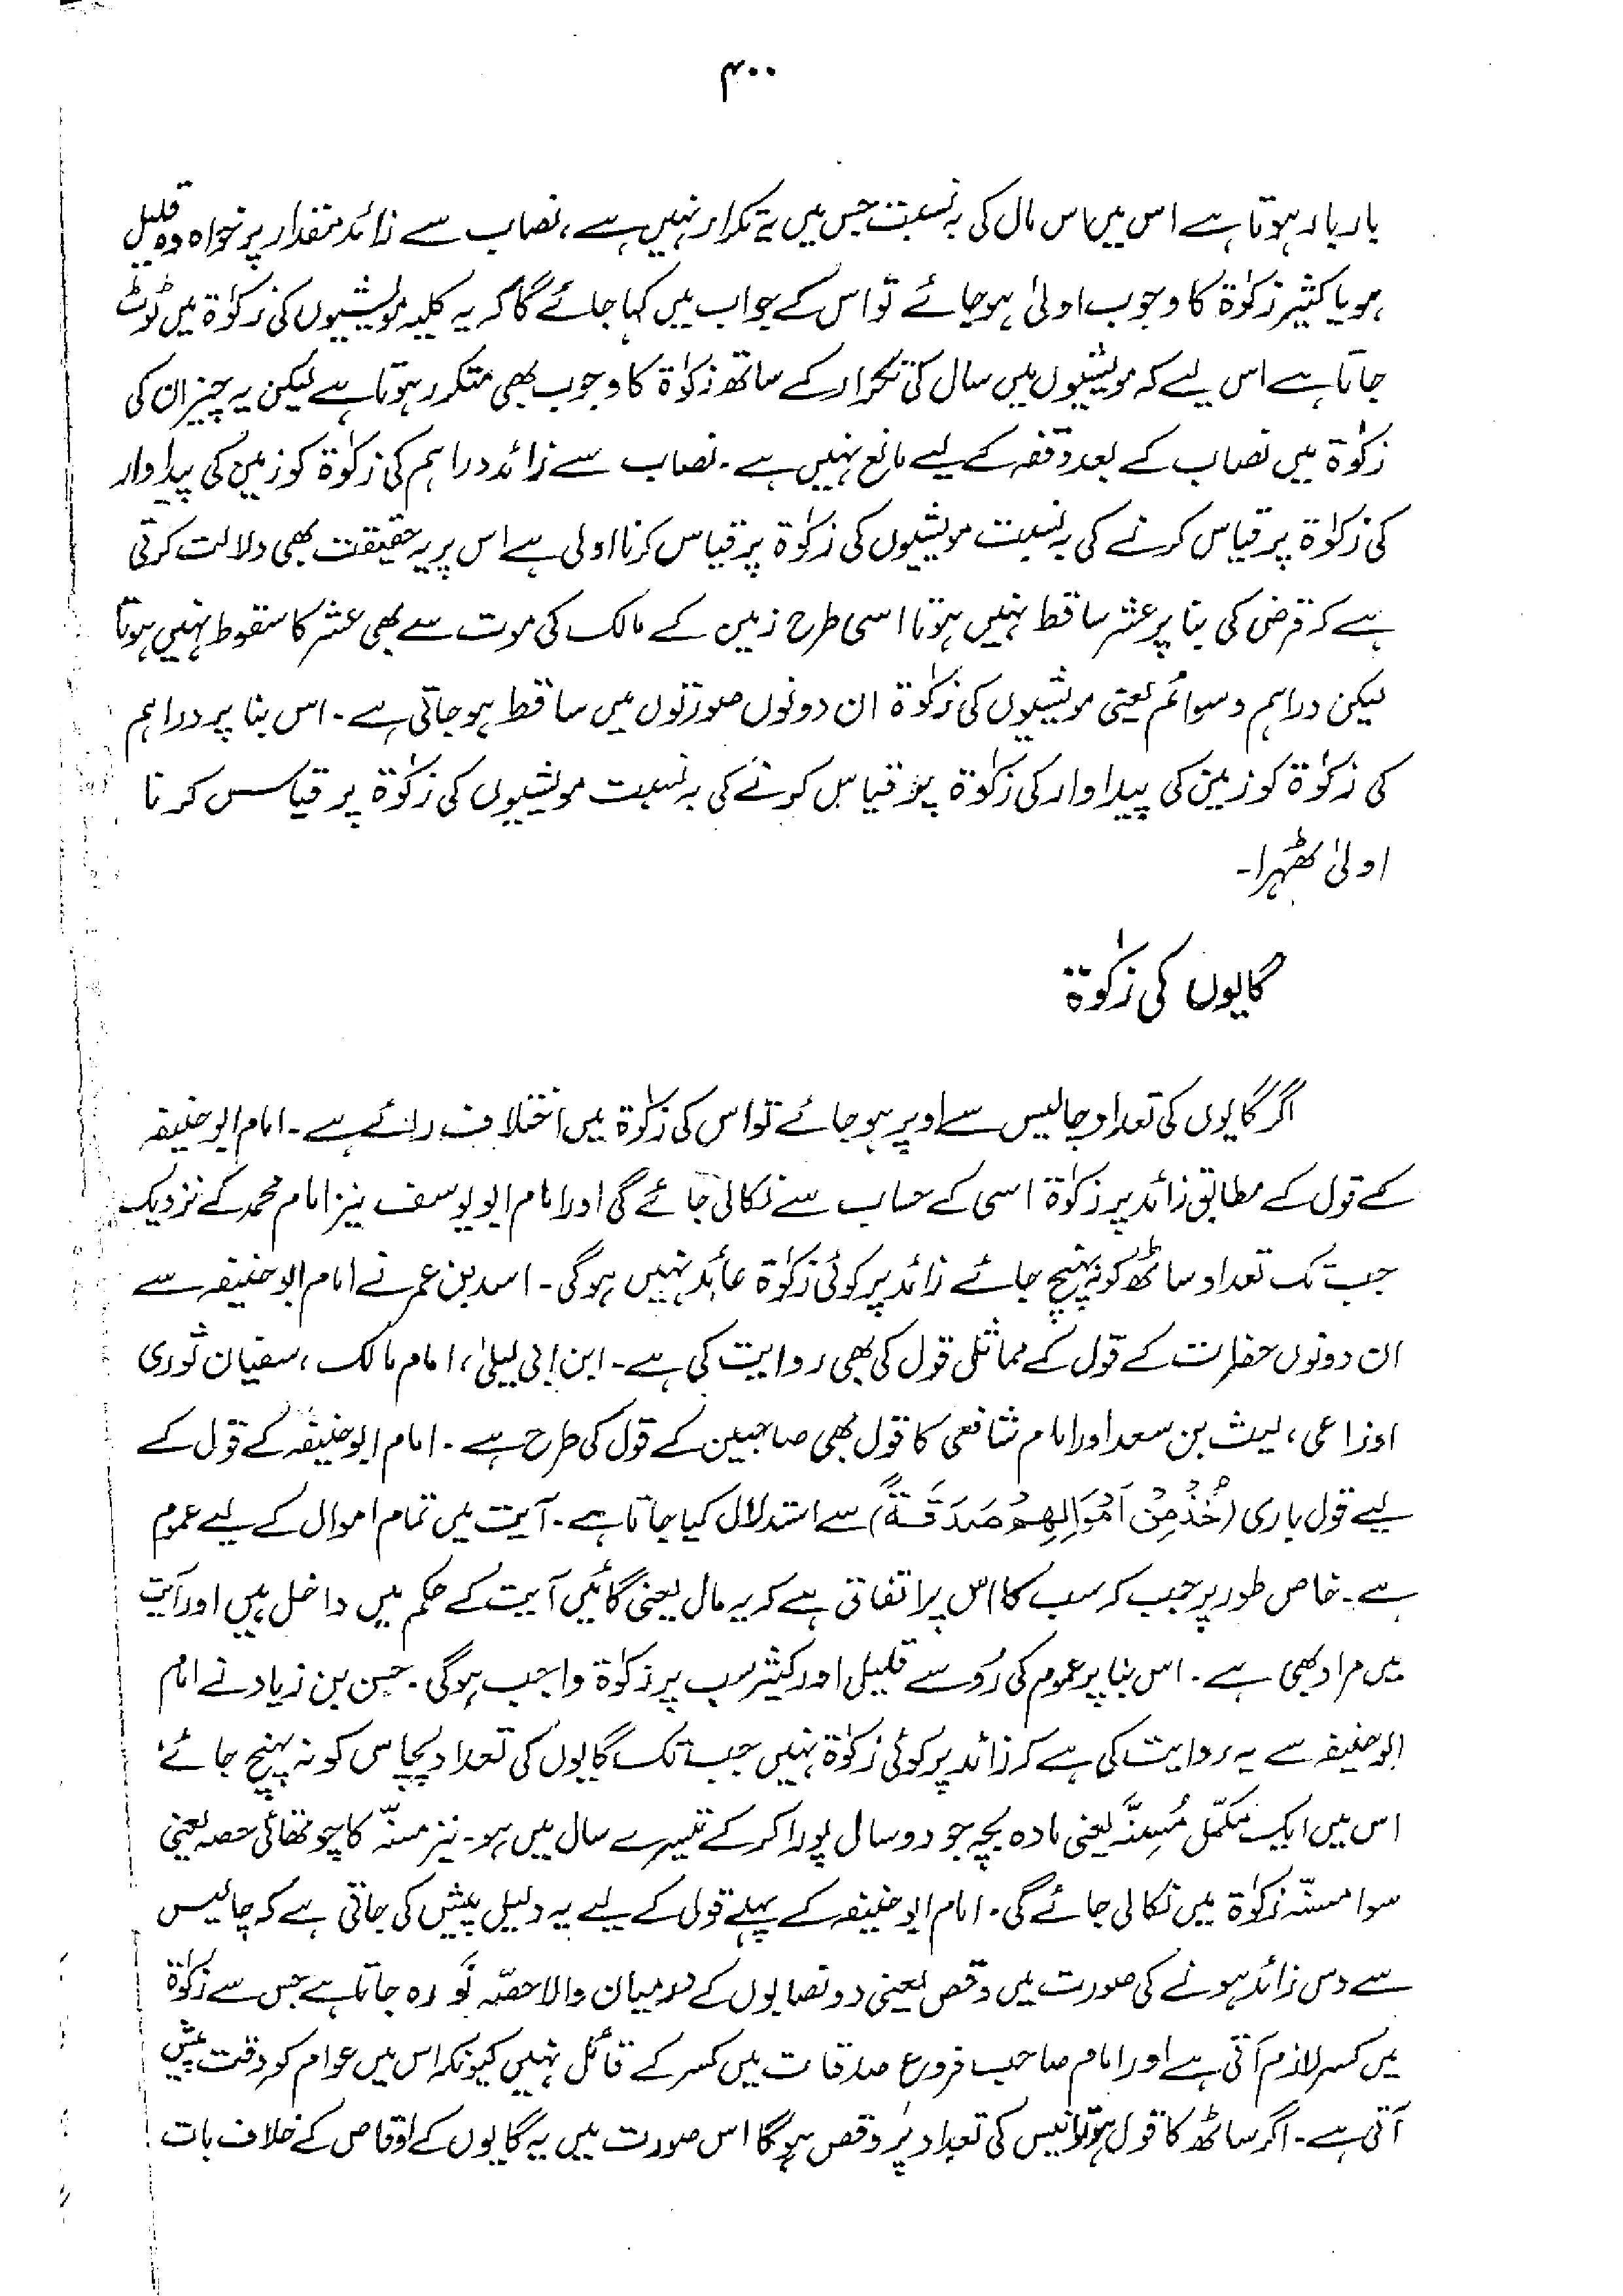 ۴۰۰
بار بار ہوتا ہے اس میں اس مال کی بہ نسبت جس میں یہ تکرار نہیں ہے، نصاب سے زائد مقدار پر خواہ وہ قلیل
ہو یا کثیر زکوٰۃ کا وجوب اولیٰ ہو جائے تو اس کے جواب میں کہا جائے گا کہ یہ کلیہ مویشیوں کی زکوٰۃ میں ٹوٹ
جاتا ہے اس لیے کہ مویشیوں میں سال کی تکرار کے ساتھ زکوٰۃ کا وجوب بھی متکرر ہوتا ہے لیکن یہ چیز ان کی
زکوٰۃ میں نصاب کے بعد وقفہ کے لیے مانع نہیں ہے۔ نصاب سے زائد دراہم کی زکوٰۃ کو زمین کی پیداوار
کی زکوٰۃ پر قیاس کرنے کی بہ نسبت مویشیوں کی زکوٰۃ پر قیاس کرنا اولی ہے اس پر یہ حقیقت بھی دلالت کرتی
ہے کہ قرض کی بنا پر عشر ساقط نہیں ہوتا اسی طرح زمین کے مالک کی موت سے بھی عشر کا سقوط نہیں ہوتا
لیکن دراہم و سوائم یعنی مویشیوں کی زکوٰۃ ان دونوں صورتوں میں ساقط ہو جاتی ہے۔ اس بنا پر دراہم
کی زکوٰۃ کو زمین کی پیداوار کی زکوٰۃ پر قیاس کرنے کی بہ نسبت مویشیوں کی زکوٰۃ پر قیاس کرنا
اولیٰ ٹھہرا۔
گایوں کی زکوٰۃ
اگر گایوں کی تعداد چالیس سے اوپر ہو جائے تو اس کی زکوٰۃ میں اختلاف رائے ہے۔ امام ابو حنیفہ
کے قول کے مطابق زائد پر زکوٰۃ اسی کے حساب سے نکالی جائے گی اور امام ابو یوسف نیز امام محمد کے نزدیک
جب تک تعداد ساٹھ کو نہ پہنچ جائے زائد پر کوئی زکوٰۃ عائد نہیں ہوگی۔ اسد بن عمر نے امام ابو حنیفہ سے
ان دونوں حضرات کے قول کے مماثل قول کی بھی روایت کی ہے۔ ابن ابی لیلیٰ، امام مالک، سفیان ثوری
اوزاعی، لیث بن سعد اور امام شافعی کا قول بھی صاحبین کے قول کی طرح ہے۔ امام ابو حنیفہ کے قول کے
لیے قول باری (خُذْ مِنْ اَمْوَالِهِمْ صَدَقَةً) سے استدلال کیا جاتا ہے۔ آیت میں تمام اموال کے لیے عموم
ہے۔ خاص طور پر جب کہ سب کا اس پر اتفاق ہے کہ یہ مال یعنی گائیں آیت کے حکم میں داخل ہیں اور آیت
میں مراد بھی ہے۔ اس بنا پر عموم کی رُو سے قلیل اور کثیر سب پر زکوٰۃ واجب ہوگی۔ حسن بن زیاد نے امام
ابو حنیفہ سے یہ روایت کی ہے کہ زائد پر کوئی زکوٰۃ نہیں جب تک گایوں کی تعداد پچاس کو نہ پہنچ جائے،
اس میں ایک مکمّل مُسِنَّہ یعنی مادہ بچہ جو دو سال پورا کر کے تیسرے سال میں ہو۔ نیز مسنّہ کا چوتھائی حصہ یعنی
سوا مسنّہ زکوٰۃ میں نکالی جائے گی۔ امام ابو حنیفہ کے پہلے قول کے لیے یہ دلیل پیش کی جاتی ہے کہ چالیس
سے دس زائد ہونے کی صورت میں وقص یعنی دو نصابوں کے درمیان والا حصّہ نَو رہ جاتا ہے جس سے زکوٰۃ
میں کسر لازم آتی ہے اور امام صاحب فروع صدقات میں کسر کے قائل نہیں کیونکہ اس میں عوام کو دقت پیش
آتی ہے۔ اگر ساٹھ کا قول ہو تو انیس کی تعداد پر وقص ہوگا اس صورت میں یہ گایوں کے اوقاص کے خلاف بات